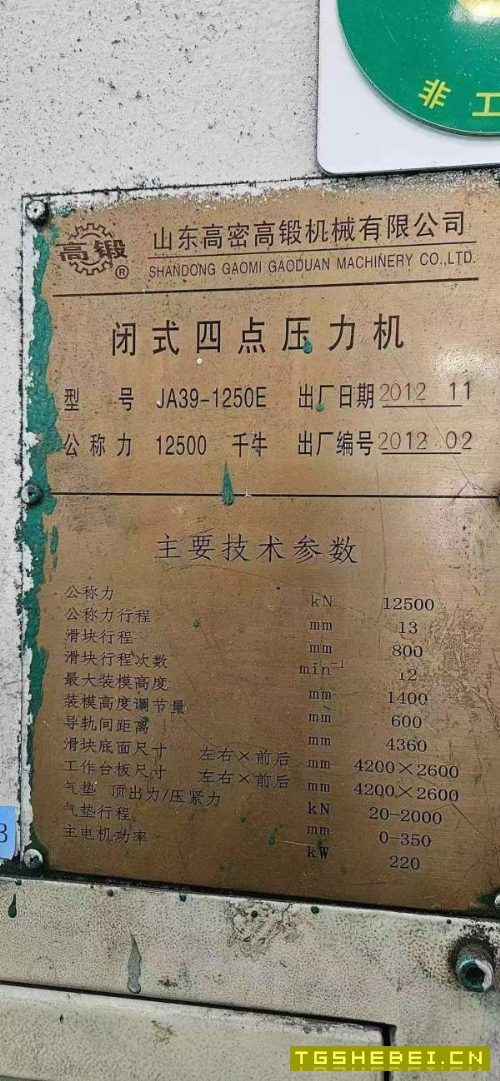 非工
高锻®
山东高密高锻机械有限公司
SHANDONG GAOMI GAODUAN MACHINERY CO.,LTD.
闭式四点压力机
型 号 JA39-1250E 出厂日期 2012 11
公称力 12500 千牛 出厂编号 2012 02
主要技术参数
公称力 kN 12500
公称力行程 mm 13
滑块行程 mm 800
滑块行程次数 min⁻¹ 12
最大装模高度 mm 1400
装模高度调节量 mm 600
导轨间距离 mm 4360
滑块底面尺寸 左右×前后 mm 4200×2600
工作台板尺寸 左右×前后 mm 4200×2600
气垫 顶出力/压紧力 kN 20-2000
气垫行程 mm 0-350
主电机功率 kW 220
3
TGSHEBEI.CN